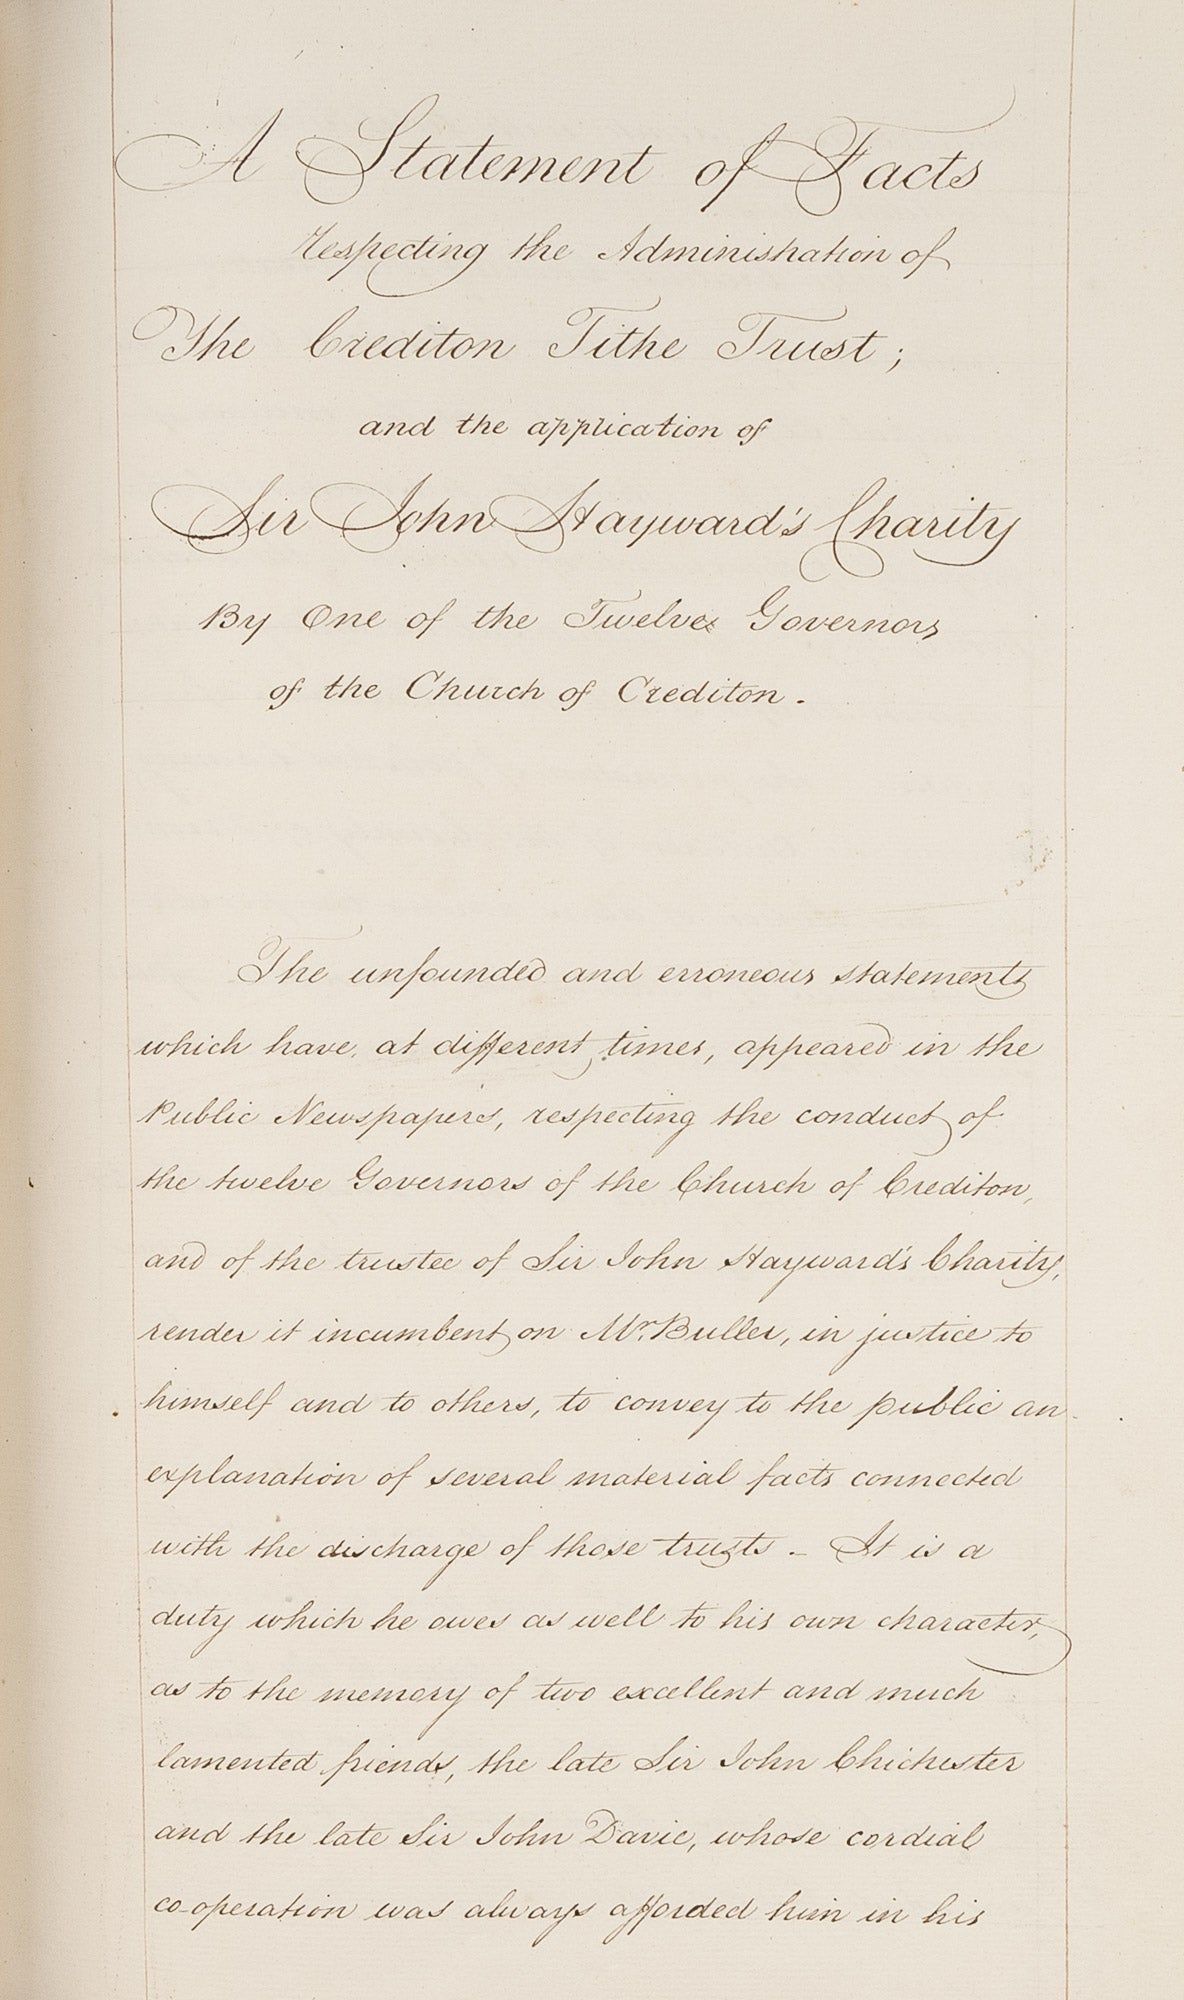 A Statement of Facts
respecting the Administration of
The Crediton Tithe Trust;
and the application of
Sir John Hayward's Charity
By One of the Twelve Governors
of the Church of Crediton.
The unfounded and erroneous statements
which have, at different times, appeared in the
Public Newspapers, respecting the conduct of
the twelve Governors of the Church of Crediton,
and of the trustee of Sir John Hayward's Charity,
render it incumbent on Mr. Buller, in justice to
himself and to others, to convey to the public an
explanation of several material facts connected
with the discharge of those trusts - It is a
duty which he owes as well to his own character,
as to the memory of two excellent and much
lamented friends, the late Sir John Chichester
and the late Sir John Davie, whose cordial
co-operation was always afforded him in his